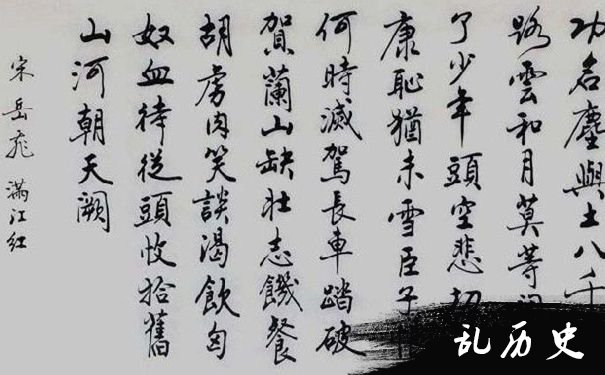 功名塵與土八千
路雲和月莫等
了少年頭空悲切
康恥猶未雪臣子
何時滅駕長車踏破
賀蘭山缺壯志饑餐
胡虜肉笑談渴飲匈
奴血待從頭收拾舊
山河朝天闕
宋岳飛滿江红
乱历史